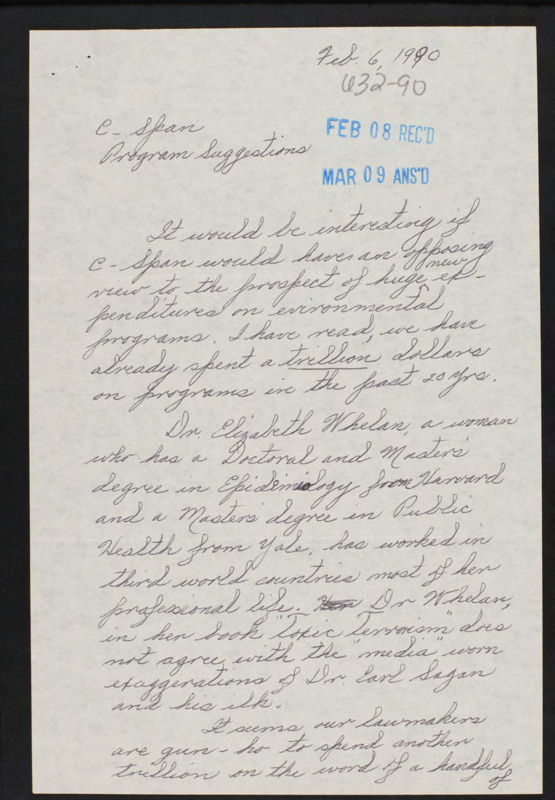 Feb. 6, 1990
632-90
C- Span
Program Suggestions
FEB 08 REC'D
MAR 09 ANS'D
It would be interesting if
C- Span would have an opposing
view to the prospect of huge new ex-
penditures on evironmental
programs. I have read, we have
already spent a trillion dollars
on programs in the past 20 yrs.
Dr. Elizabeth Whelan, a woman
who has a Doctoral and Masters
degree in Epidemiology from Harvard
and a Masters degree in Public
Health from Yale, has worked in
third world countries most of her
professional life. Dr Whelan,
in her book "Toxic Terroism" does
not agree with the "media" worn
exaggerations of Dr. Earl Sagan
and his ilk.
It seems our lawmakers
are gun-ho to spend another
trillion on the word of a handful
of